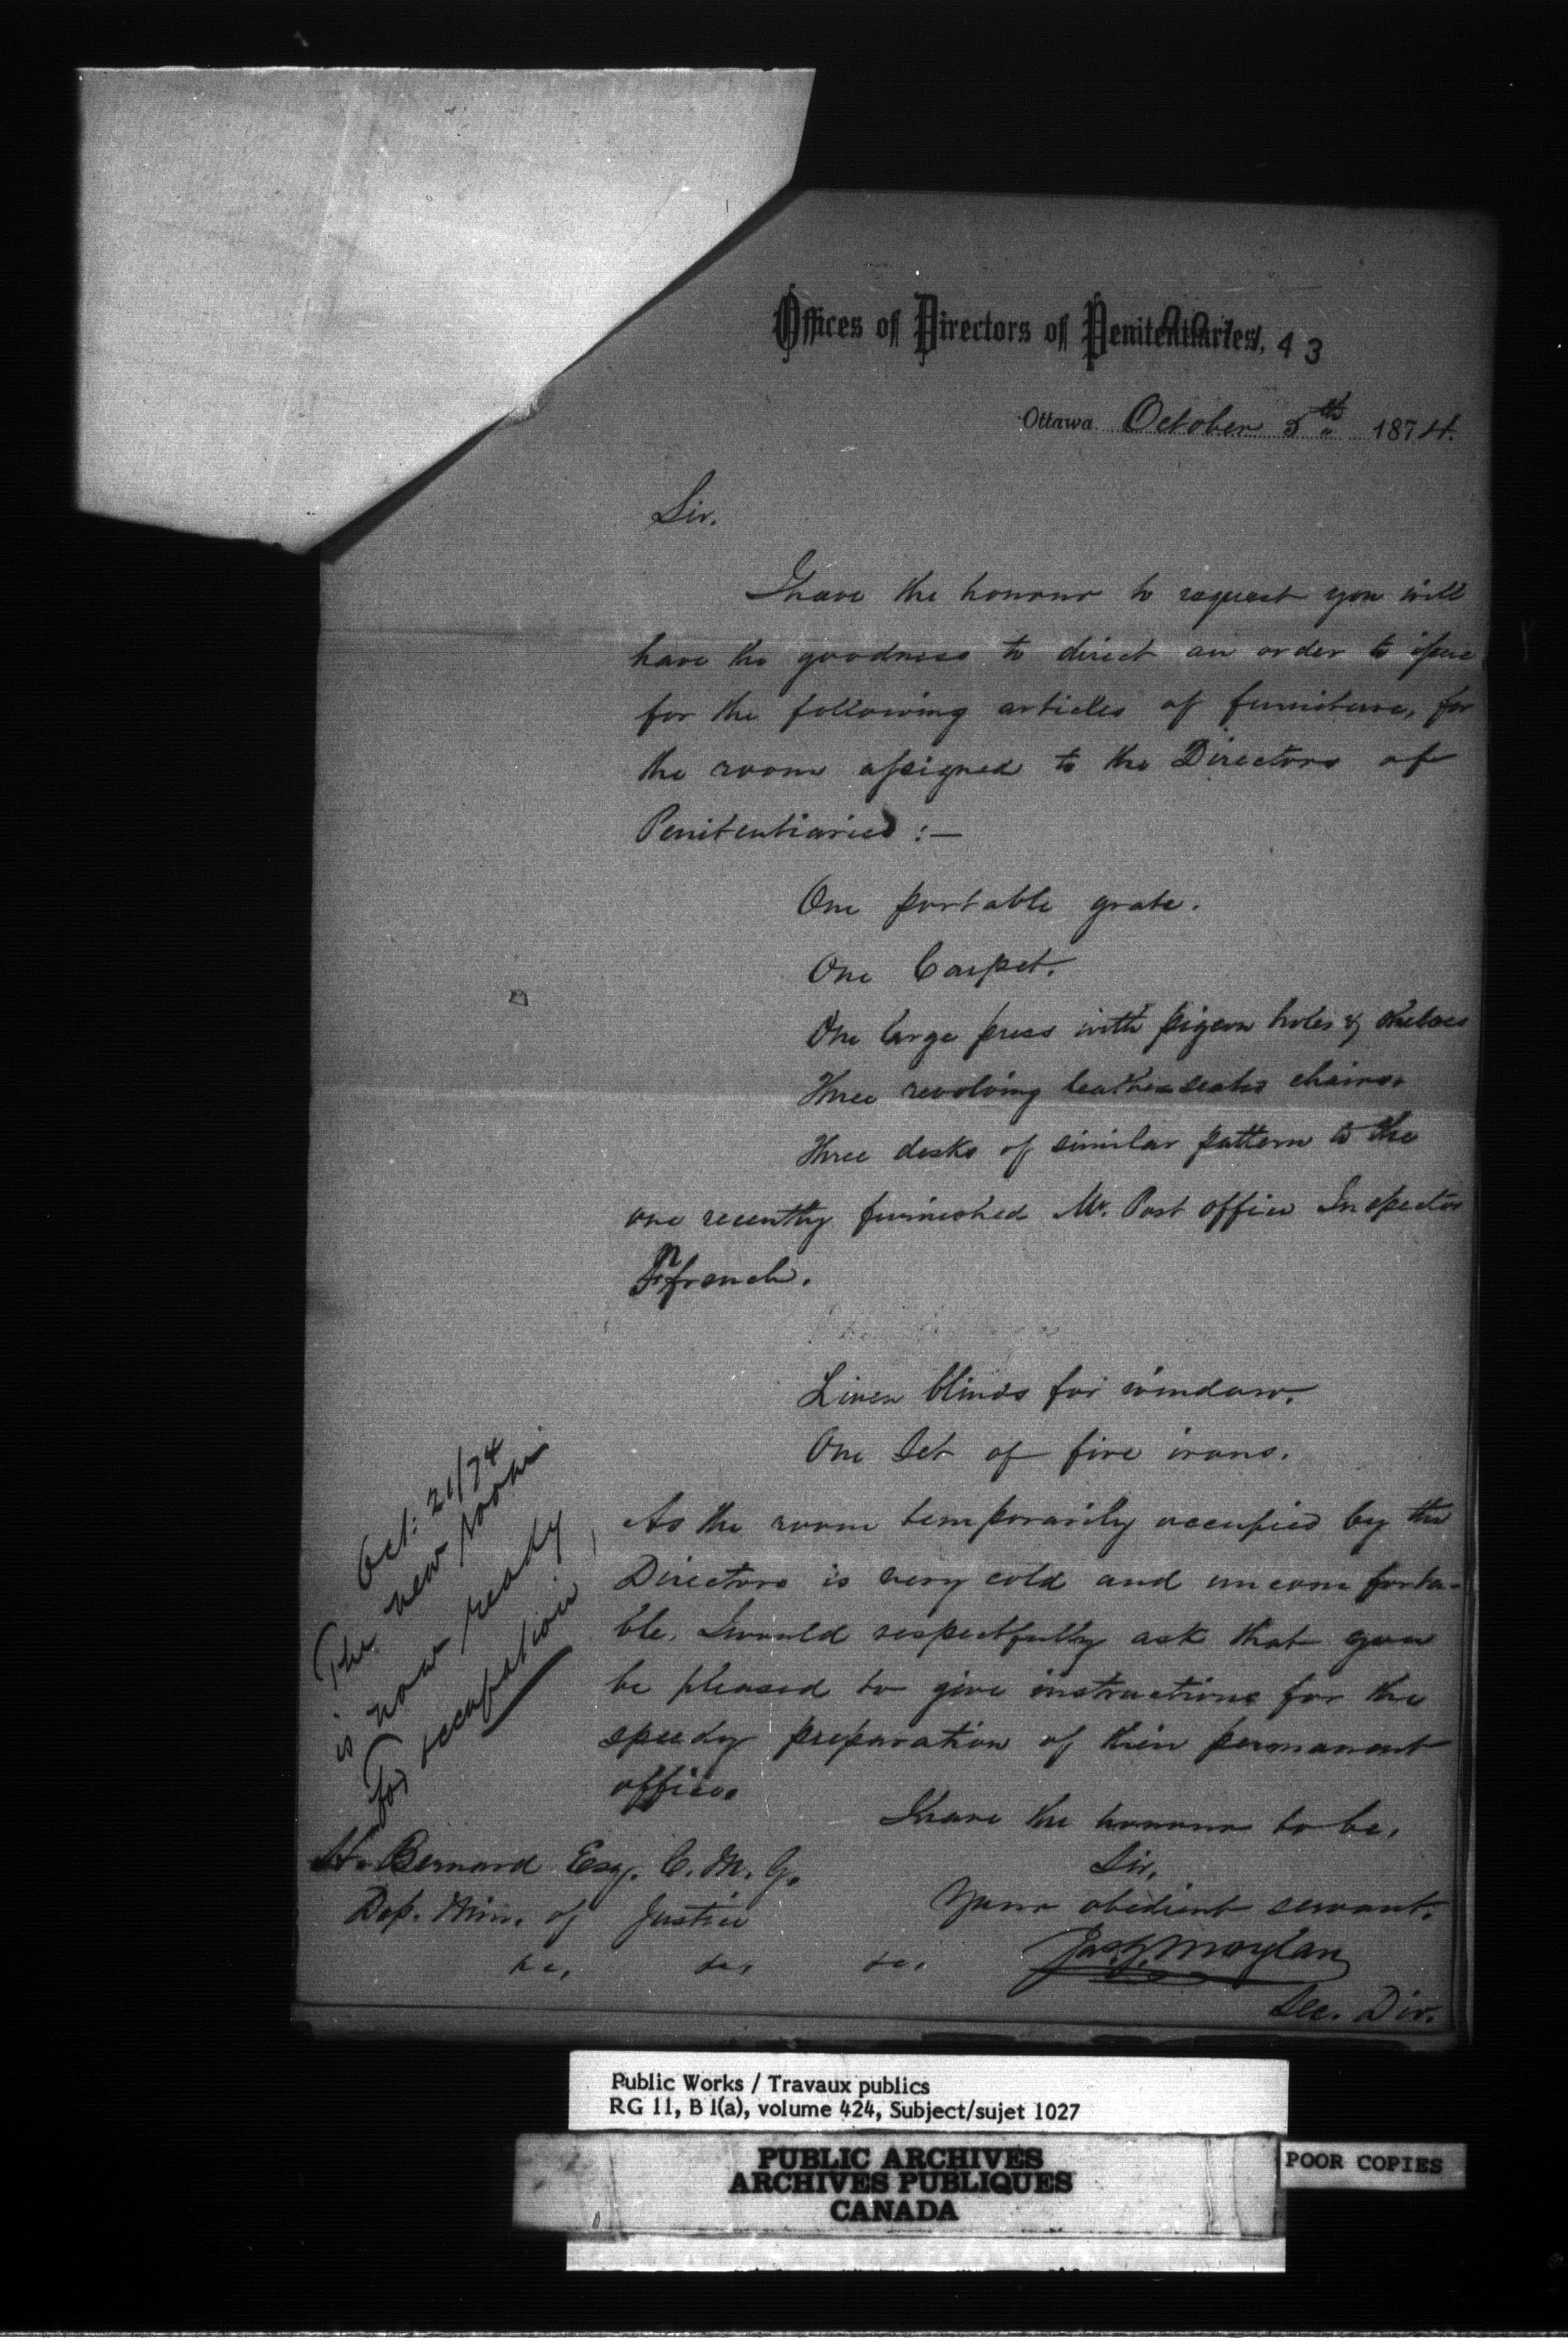 Offices of Directors of Penitentiaries, 43
Ottawa October 5th 1874.
Sir.
I have the honour to request you will
have the goodness to direct an order to issue
for the following articles of furniture, for
the room assigned to the Directors of
Penitentiaries :—
One portable grate.
One Carpet.
One large press with pigeon holes & shelves
Three revolving leather seats chairs.
Three desks of similar pattern to the
one recently furnished Mr. Post office Inspector
french.
Linen blinds for window.
One Set of fire irons.
As the room temporarily occupied by the
Directors is very cold and uncomforta-
ble. I would respectfully ask that you
be pleased to give instructions for the
speedy preparation of their permanent
office.
I have the honour to be,
Sir,
Your obedient servant.
Jas. G. Moylan
Sec. Dir.
H. Bernard Esq. C. M. G.
Dep. Min. of Justice
&c, &c, &c,
Oct: 21/74
The new room
is now ready
for occupation
Public Works / Travaux publics
RG 11, B 1(a), volume 424, Subject/sujet 1027
PUBLIC ARCHIVES
ARCHIVES PUBLIQUES
CANADA
POOR COPIES